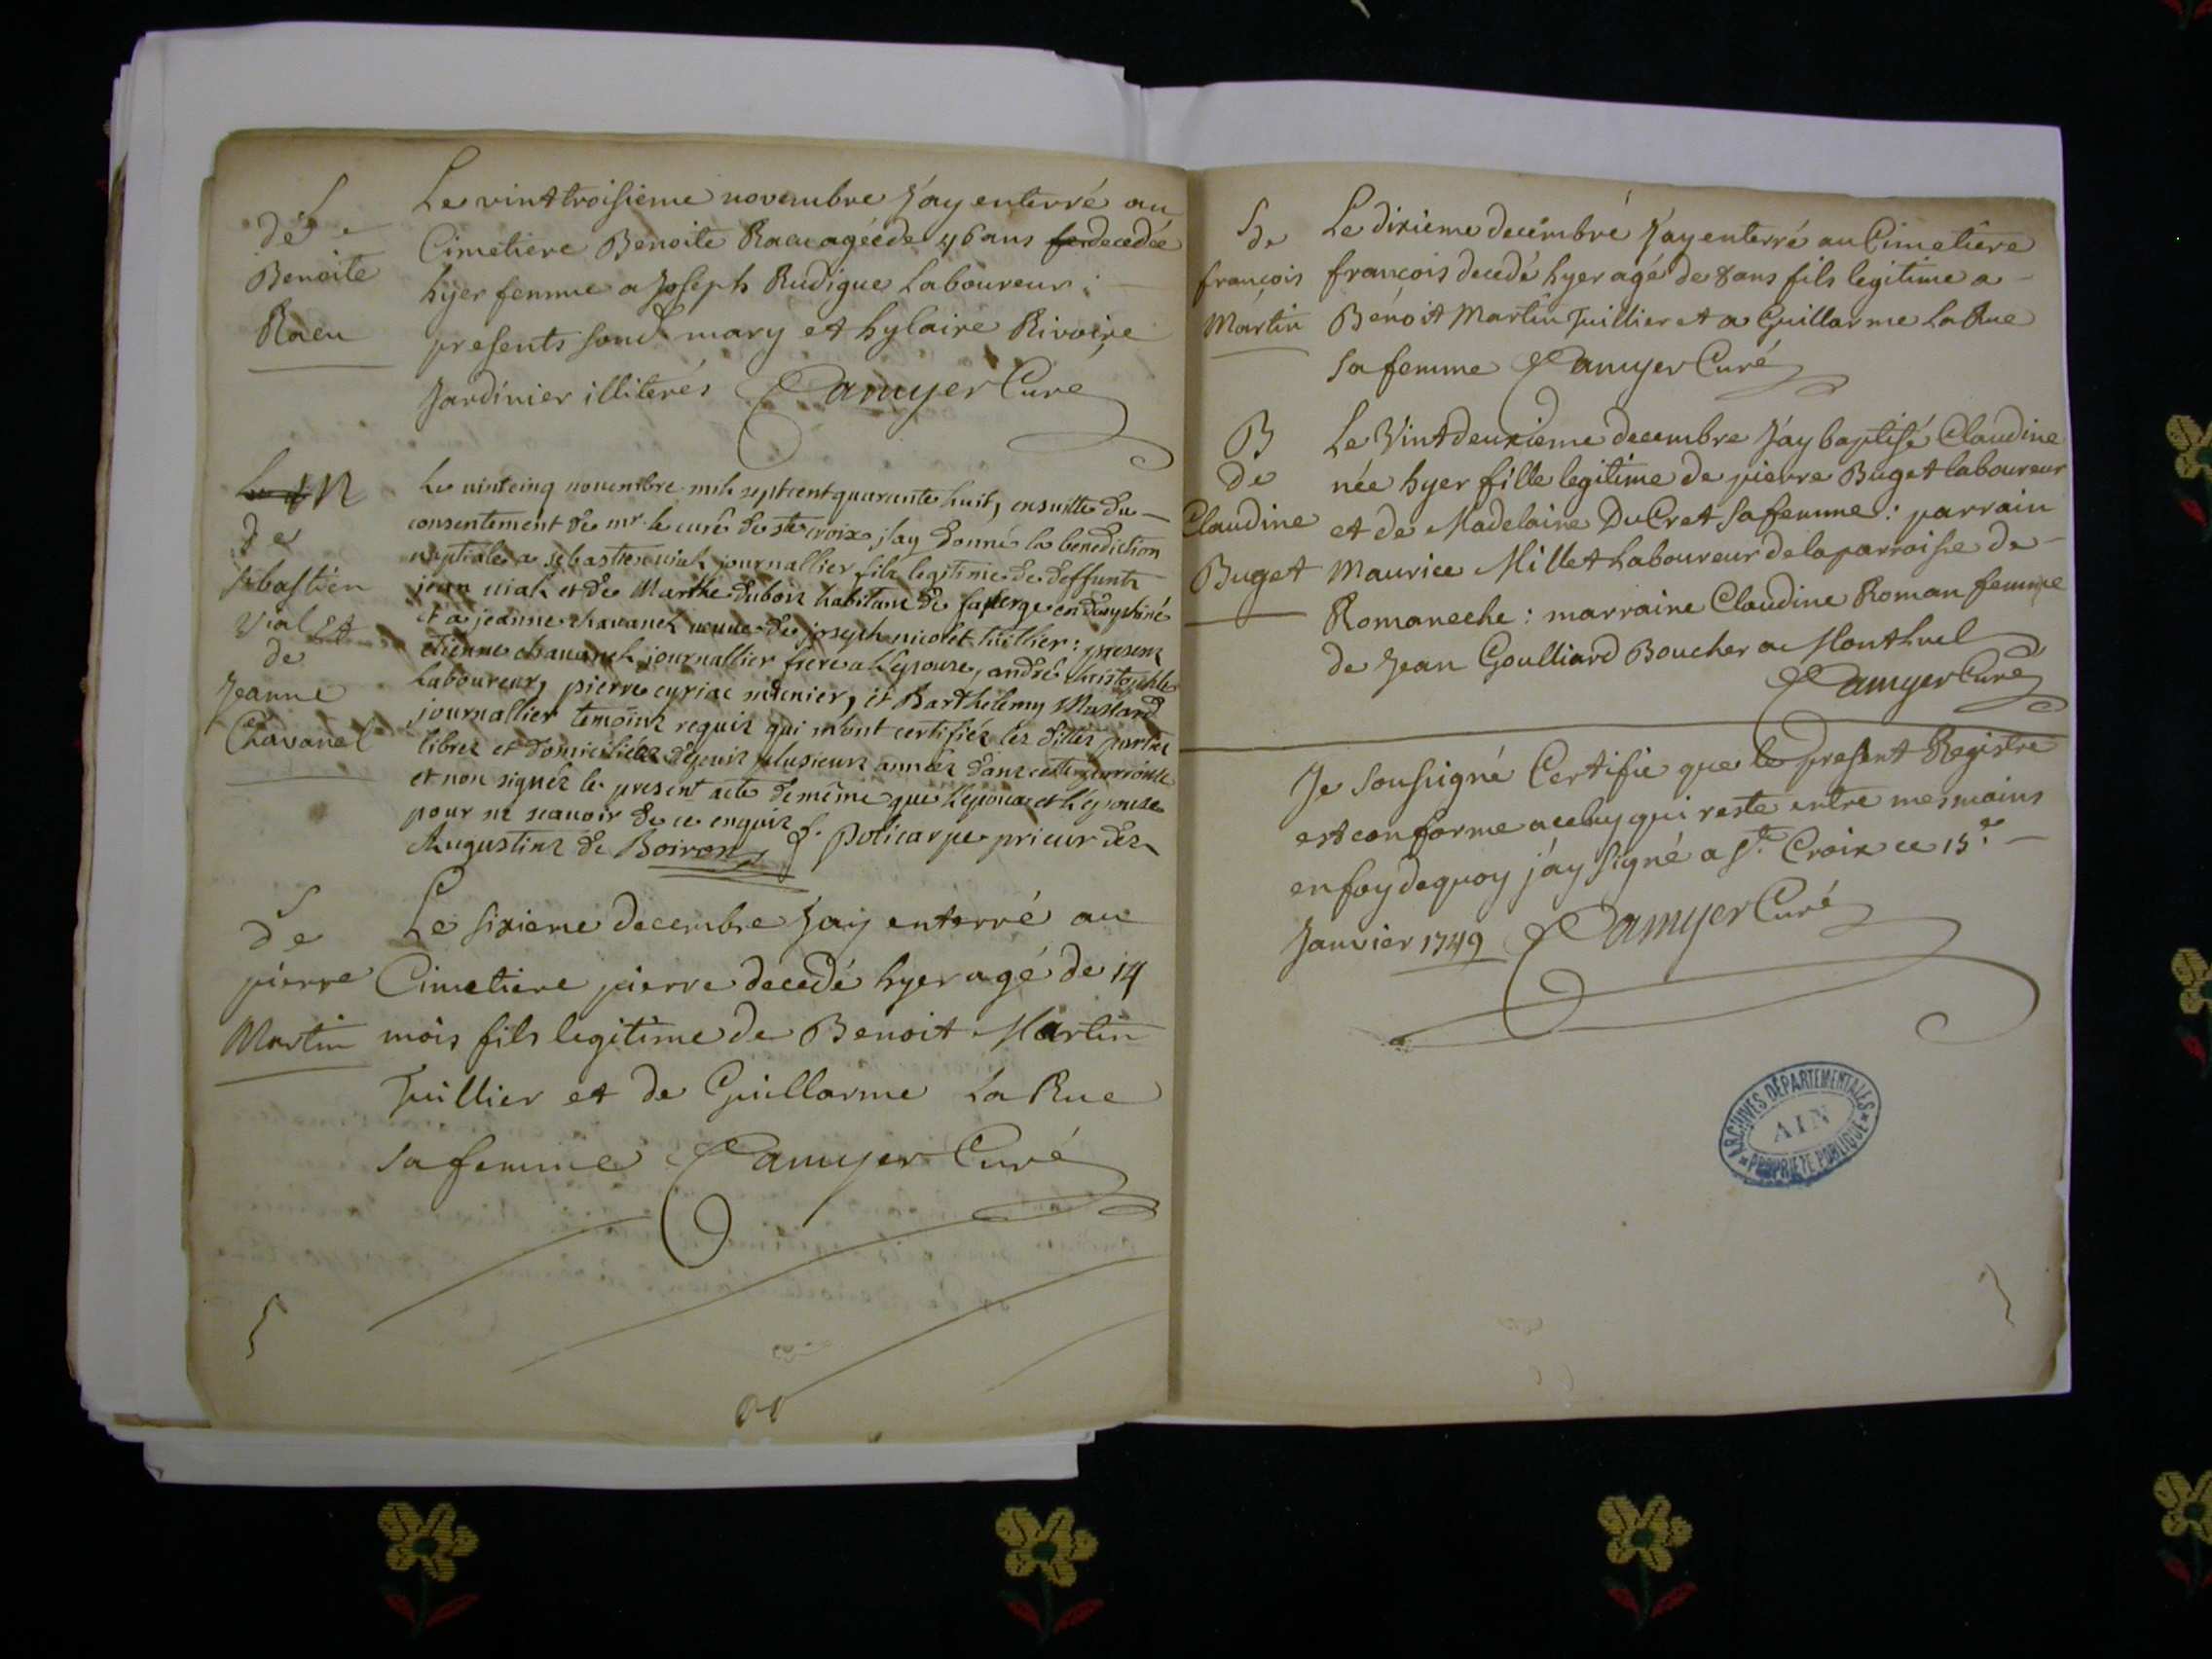 S
de
Benoite
Raeu
Le vint troisieme novembre J'ay enterré au
Cimetiere Benoite Raeu agéede 46 ans decedée
hyer femme a Joseph Rudigue Laboureur :
presents sond. mary et hylaire Rivoire
Jardinier illiterés Camyer Curé
M
de
sebastien
Vial et
de
Jeanne
Chavanel
Le vintcinq novembre mil septcent quarante huit, ensuitte du
consentement de mr. le curé de ste croix, j'ay donné la benediction
nuptiale a sebastien vial journallier fils legitime de deffunts
jean vial et de Marthe dubois habitant de faverge en dauphiné
et a jeanne chavanel veuve de joseph nicolet tuillier : presens
etienne chavanel journallier frere a l'epouse, andré
laboureur, pierre cyriac meunier, et Barthelemy Massard
journallier temoins requis qui m'ont certifiés les dittes parties
libres et domiciliées depuis plusieurs années dans cette parroisse
et non signés le present acte de même que l'epoux et l'epouse
pour ne scavoir de ce enquis f. policarpe prieur des
Augustins de Boiron
S
de
pierre
Martin
Le sixieme decembre J'ay enterré au
Cimetiere pierre decedé hyer agé de 14
mois fils legitime de Benoit Martin
Tuillier et de Guillarme La Rue
sa femme Camyer Curé
S
de
françois
Martin
Le dixieme decembre J'ay enterré au Cimetiere
françois decedé hyer agé de 8 ans fils legitime a
Benoit Martin Tuillier et a Guillarme La Rue
sa femme Camyer Curé
B
de
Claudine
Buget
Le Vint deuxieme decembre J'ay baptisé Claudine
née hyer fille legitime de pierre Buget laboureur
et de Madelaine DuCret sa femme : parrain
Maurice Millet Laboureur de la parroisse de
Romaneche : marraine Claudine Roman femme
de Jean Goulliard Boucher a Montluel
Camyer Curé
Je soussigné Certifie que le present Registre
est conforme a celuy qui reste entre mes mains
en foy de quoy j'ay signé a Ste. Croix ce 15e.
Janvier 1749 Camyer Curé
ARCHIVES DÉPARTEMENTALES
AIN
PROPRIÉTÉ PUBLIQUE